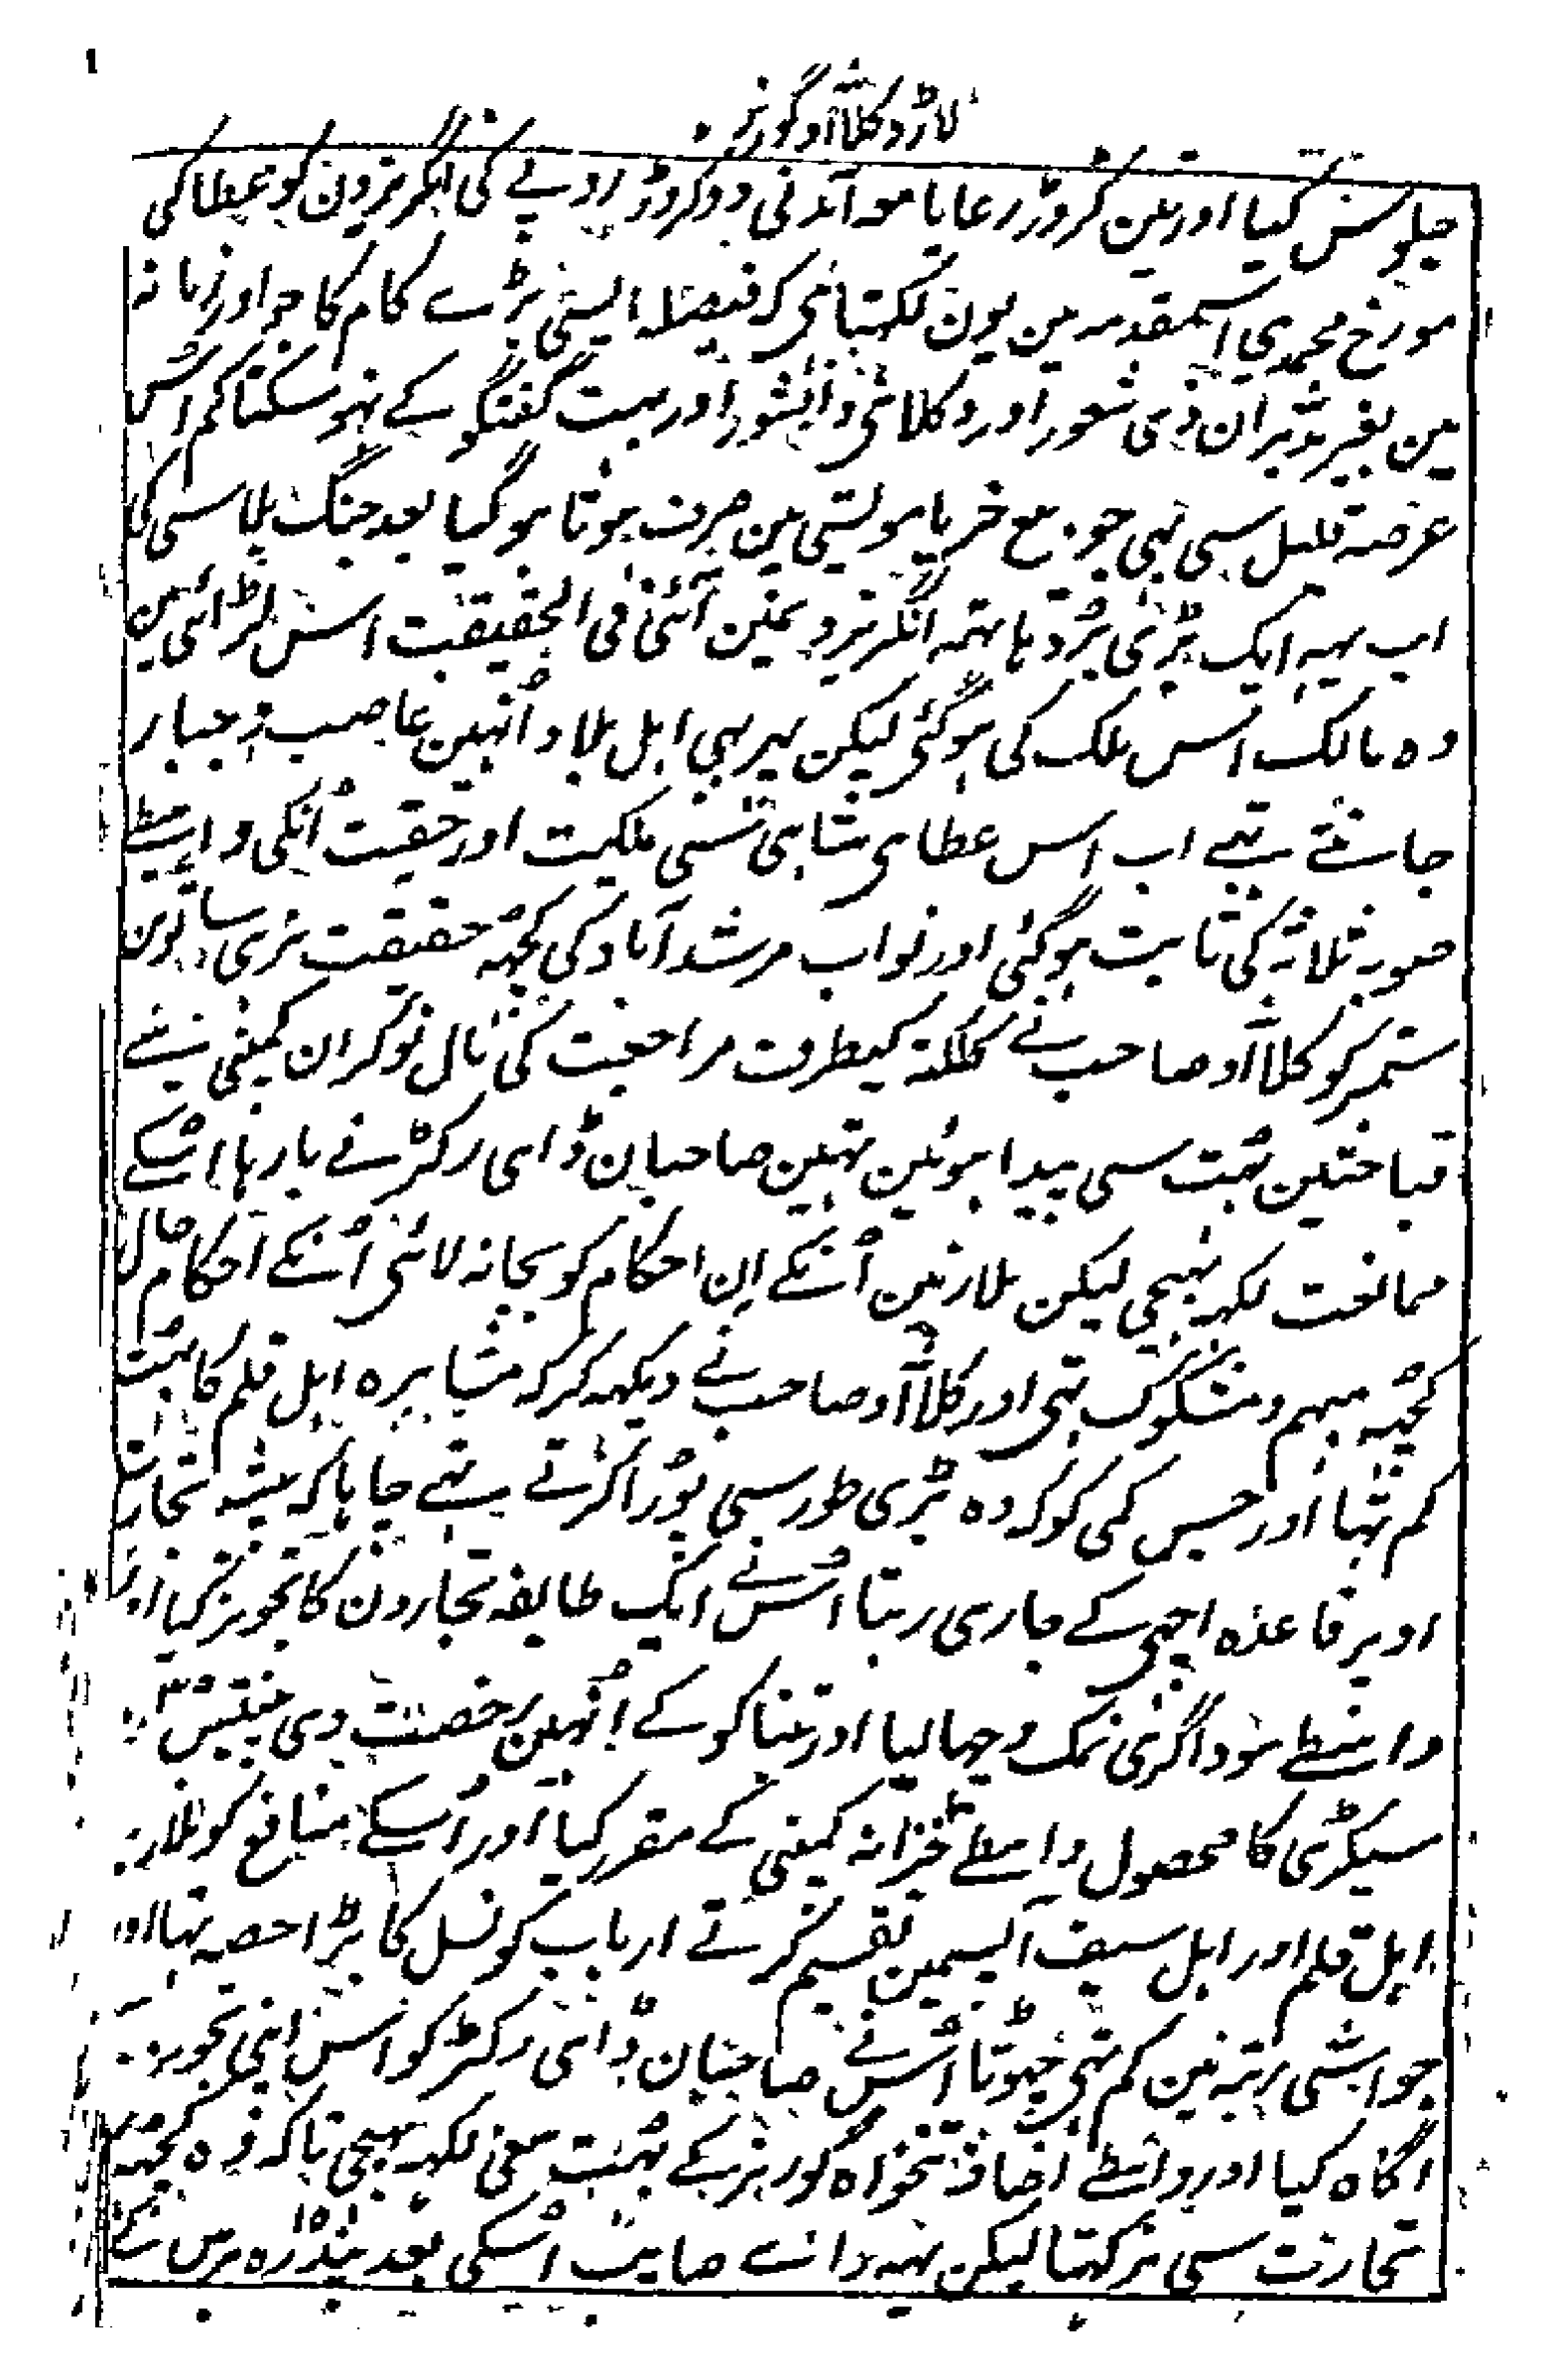 1
لارڈ کلااو گورنر
جلوس کیا اور تین کروڑ رعایا معہ آمدنی دو کروڑ روپے کی انگریزون کو عطا کی
مورخ محمدی اسمقدمہ مین یون لکہتا ہی کہ فیصلہ ایسی بڑے کام کا جو اور زمانہ
مین بغیر مدبران ذی شعور اور وکلائی دانشور اور بہت گفتگو کے نہو سکتا کم اس
عرصہ قلیل سی بہی جو بیع خر یا مویشی مین صرف ہوتا ہو گیا بعد جنگ پلاسی کی
اب یہہ ایک بڑی بڑد ہاتہہ انگریزو نمین آئی فی الحقیقت اس لڑائی مین
وہ مالک اس ملک کی ہوگئی لیکن پہر بہی اہل بلاد اُنہین غاصب و جبار
جانتے تہے اب اس عطای شاہی سی ملکیت اور حقیت اُنکی واسطے
صوبہ ثلاثہ کی ثابت ہوگئی اور نواب مرشد آباد کی کچہہ حقیقت نرہی ساتوین
ستمبر کو کلااو صاحب نے کلکتہ کیطرف مراجعت کی نال نوکران کمپنی نسے
قباحتین بہت سی پیدا ہوئین تہین صاحبان ڈائی رکٹر نے بارہا اُسکے
ممانعت لکہہ بہیجی لیکن ملازمین اُنکے ان احکام کو بجا نہ لائی اُنکے احکام حال
کچہہ مبہم و مشکوک تہی اور کلااو صاحب نے دیکہہ کر کہ مشاہرہ اہل قلم کا بہت
کم تہا اور جس کمی کو کہ وہ بڑی طور سی پورا کرتے تہے چاہا کہ پیشہ تجارت
اوپر قاعدہ اچہی کے جاری رہتا اُس نے ایک طایفہ تجارون کا تجویز کیا اور
واسطے سوداگری نمک و چہالیا اور تنباکو کے اُنہین رخصت دی پینتیس ۳۵
سیکڑی کا محصول واسطے خزانہ کمپنی کے مقرر کیا اور اُسکے منافع کو ملاز
اہل قلم اور اہل سیف آپسمین تقسیم کرتے ارباب کونسل کا بڑا حصہ تہا اور
جو اسی رتبہ مین کم تہی چہوٹا اُس نے صاحبان ڈائی رکٹر کو اس اپنی تجویز
آگاہ کیا اور واسطے اضافہ تنخواہ گورنر کے بہت سعی لکہہ بہیجی تاکہ وہ کچہہ
تجارت سی نرکہتا لیکن یہہ دانے صایب اُسکی بعد پندرہ ۱۵ برس کے